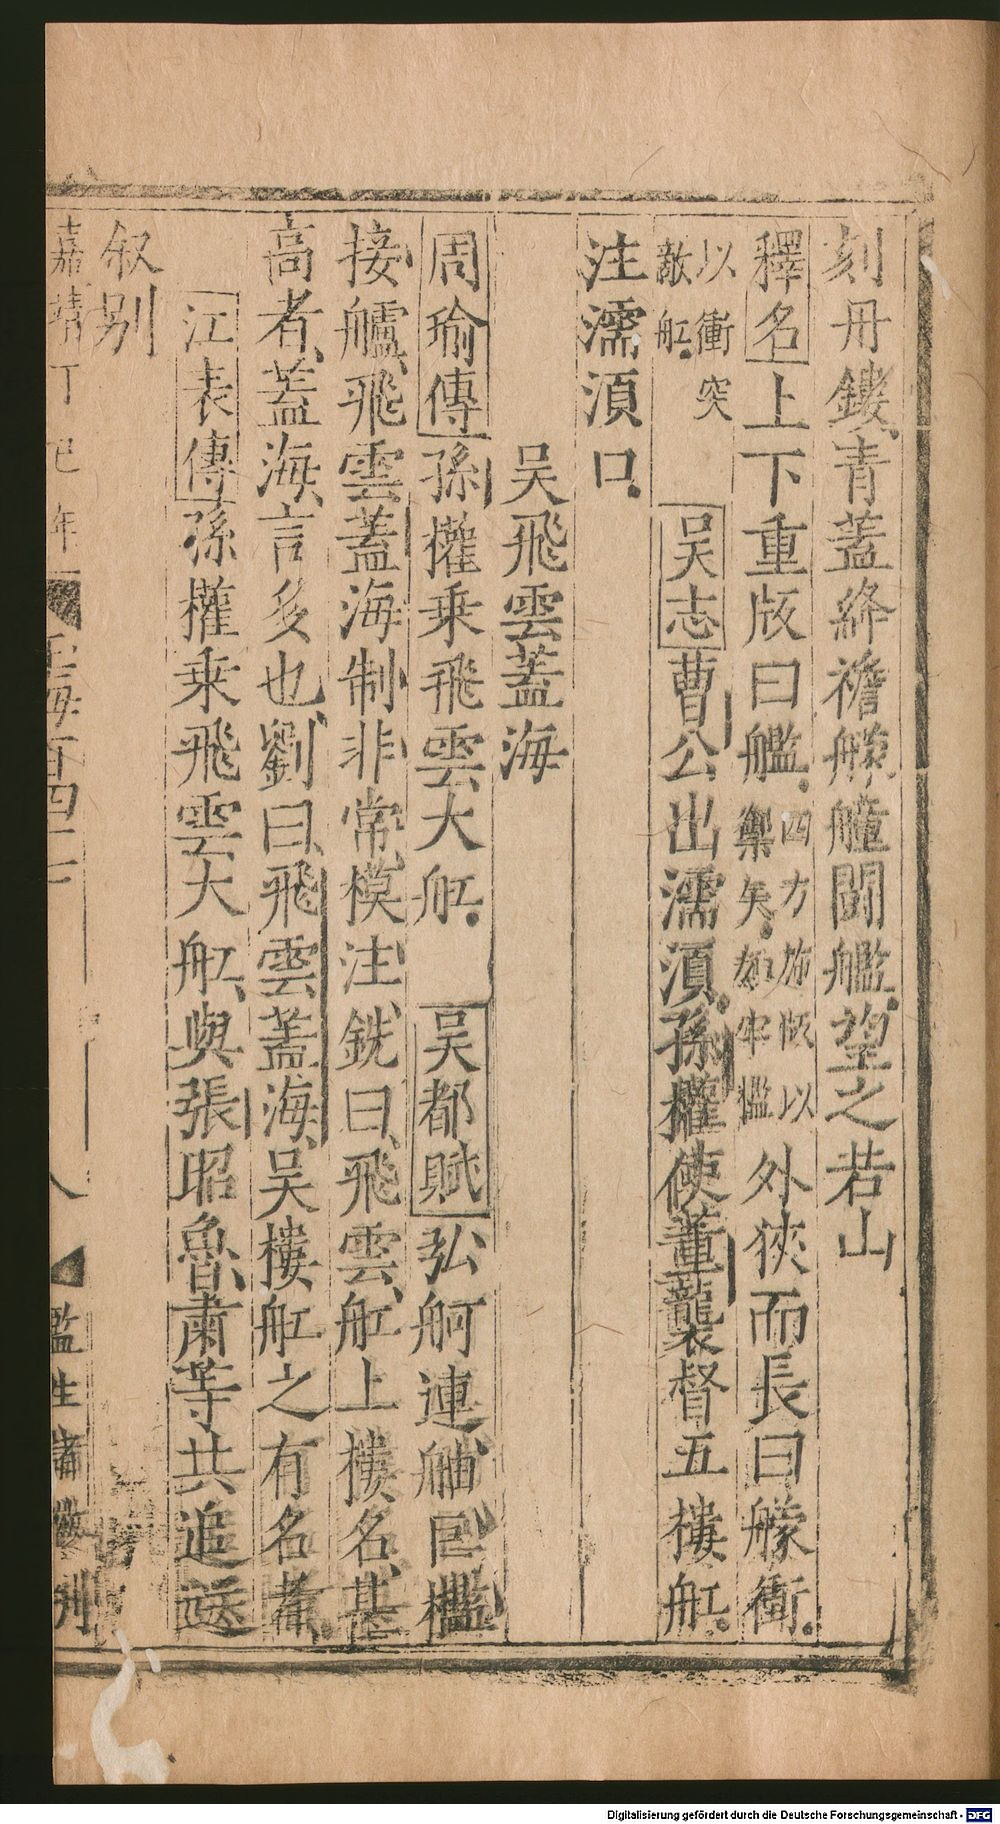 刻丹鏤青蓋絳襜艨艟鬬艦望之若山
釋名上下重版曰艦四方施版以禦矢如牢檻外狹而長曰艨衝
以衝突敵舡吳志曹公出濡須孫權使董襲督五樓舡
注濡須口
吳飛雲蓋海
周瑜傳孫權乗飛雲大舡吳都賦弘舸連舳巨檻
接艫飛雲蓋海制非常模注銑曰飛雲舡上樓名甚
高者蓋海言多也劉曰飛雲蓋海吳樓舡之有名者
江表傳孫權乗飛雲大舡與張昭魯肅等共追送
叙别
嘉靖丁巳年
玉海百四十七
八
監生
刋
Digitalisierung gefördert durch die Deutsche Forschungsgemeinschaft - DFG